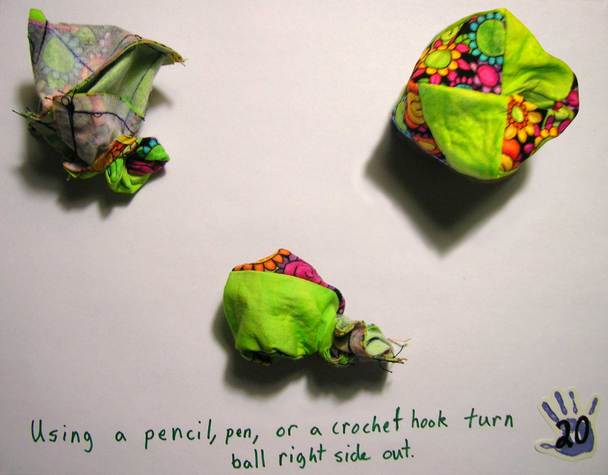 Using a pencil, pen, or a crochet hook turn
ball right side out.
20